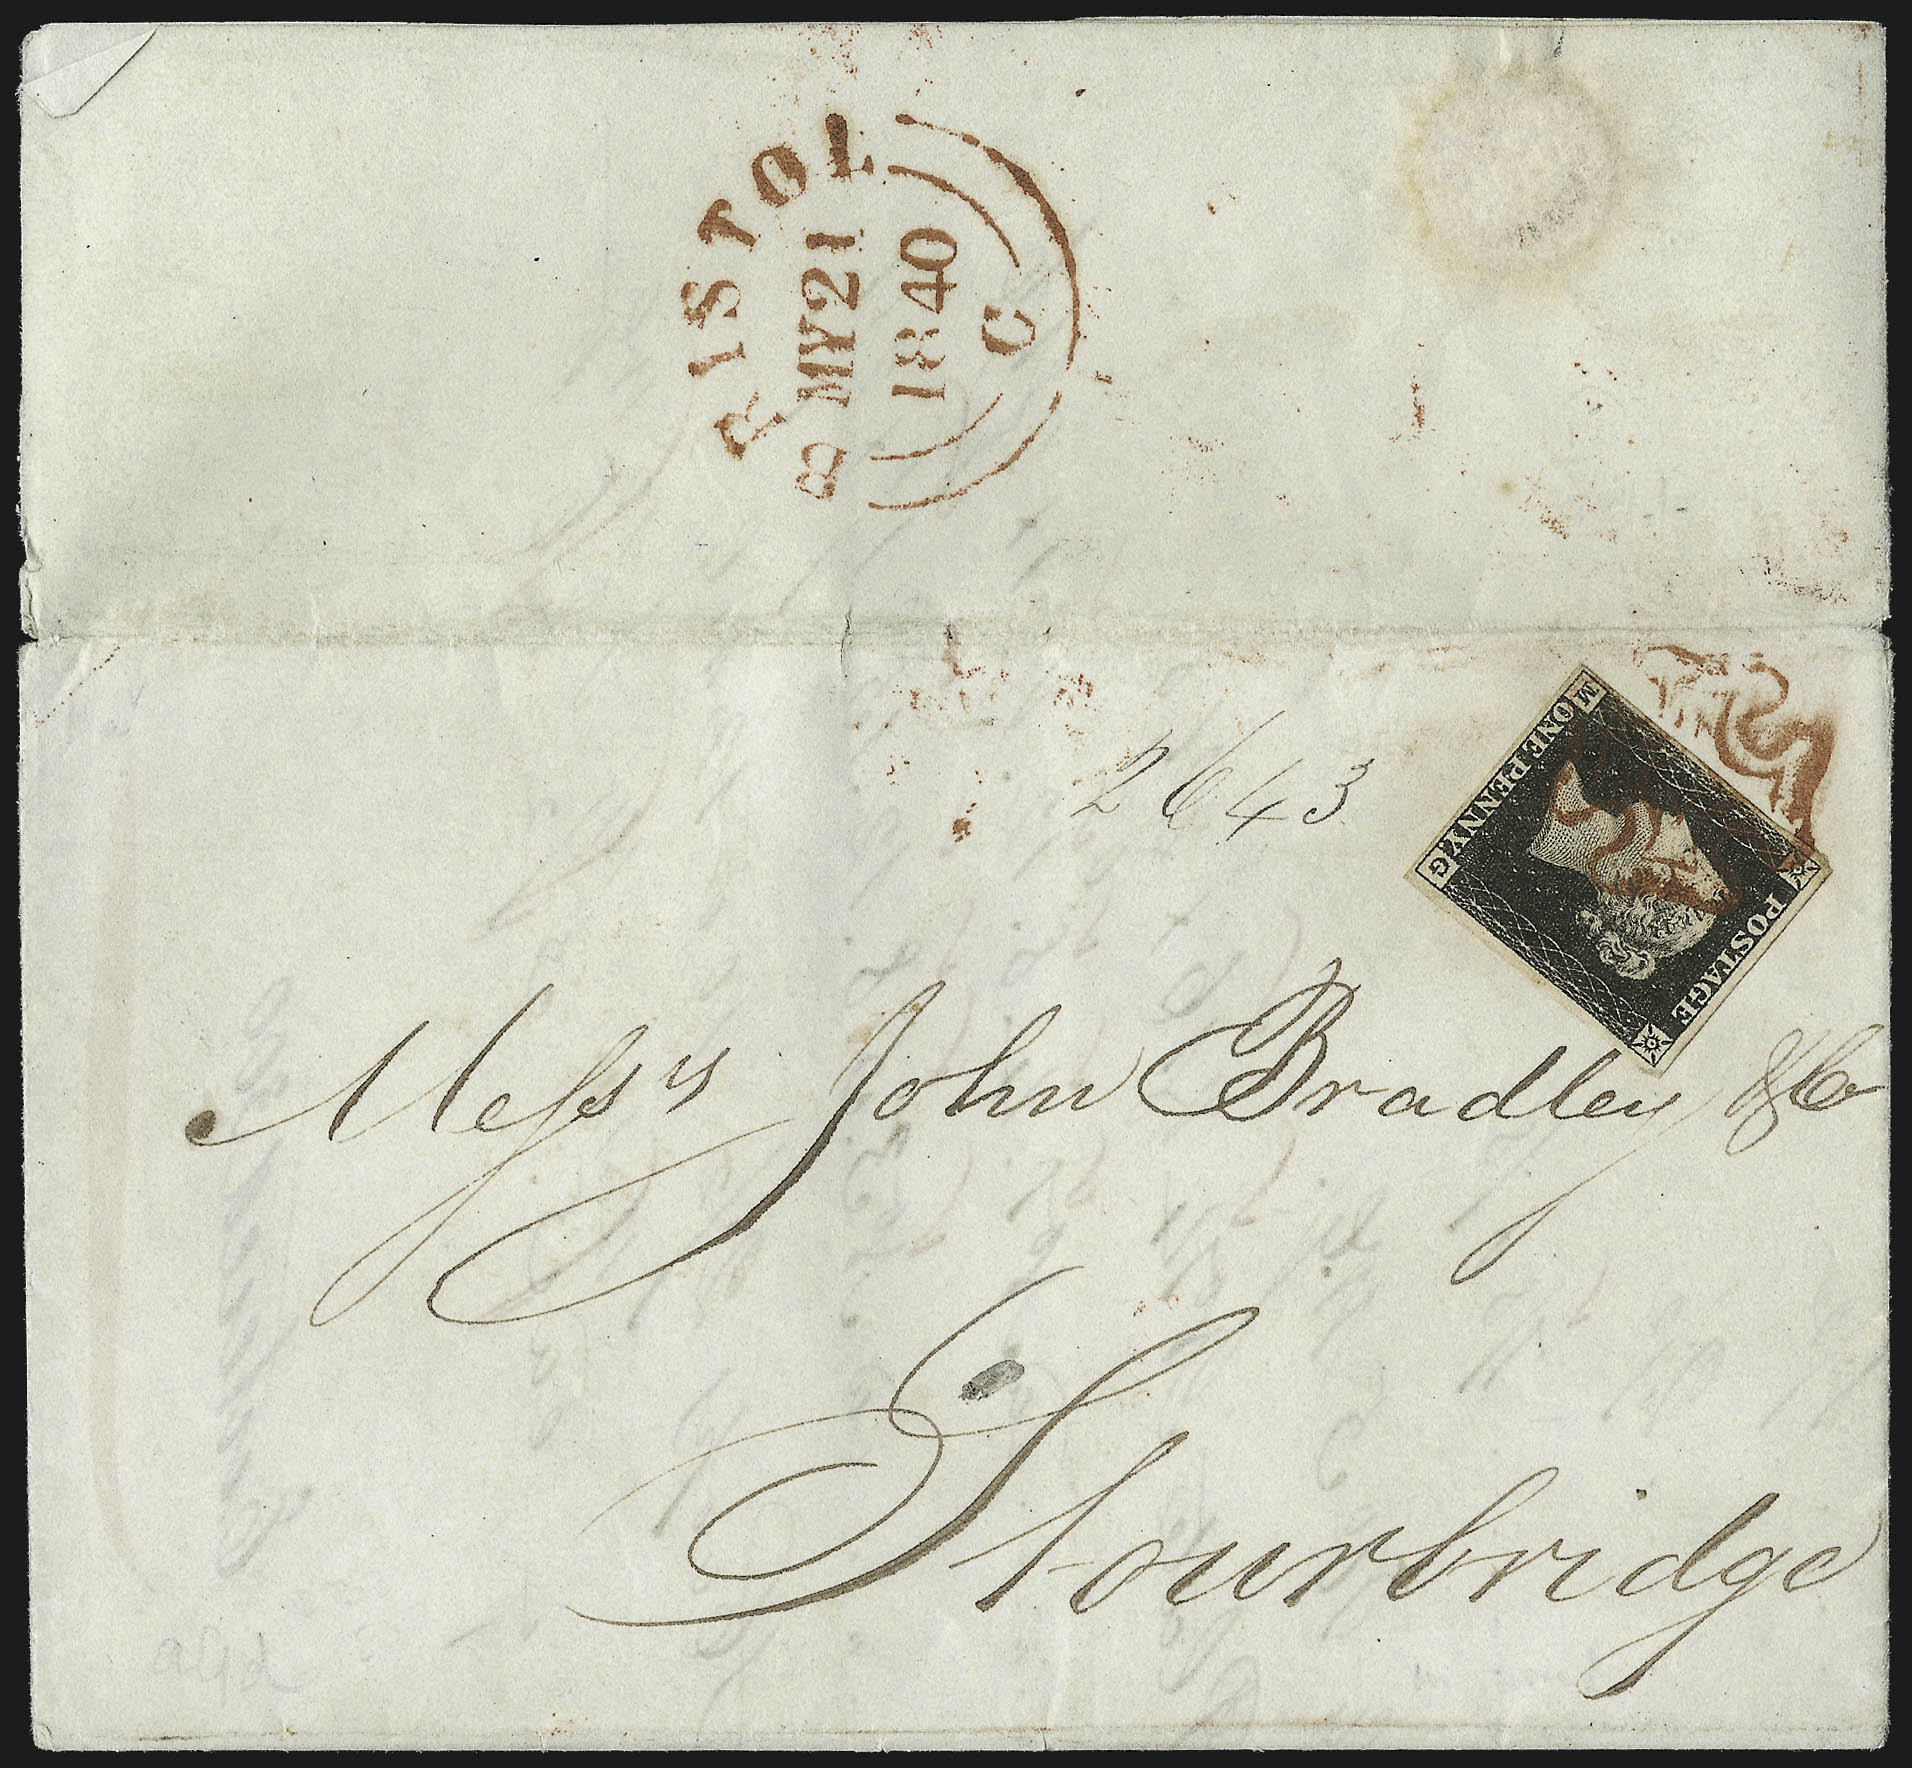 BRISTOL
MY 21
1840
C
2643
POSTAGE
ONE PENNY
M G
Messrs John Bradley & Co
Stourbridge